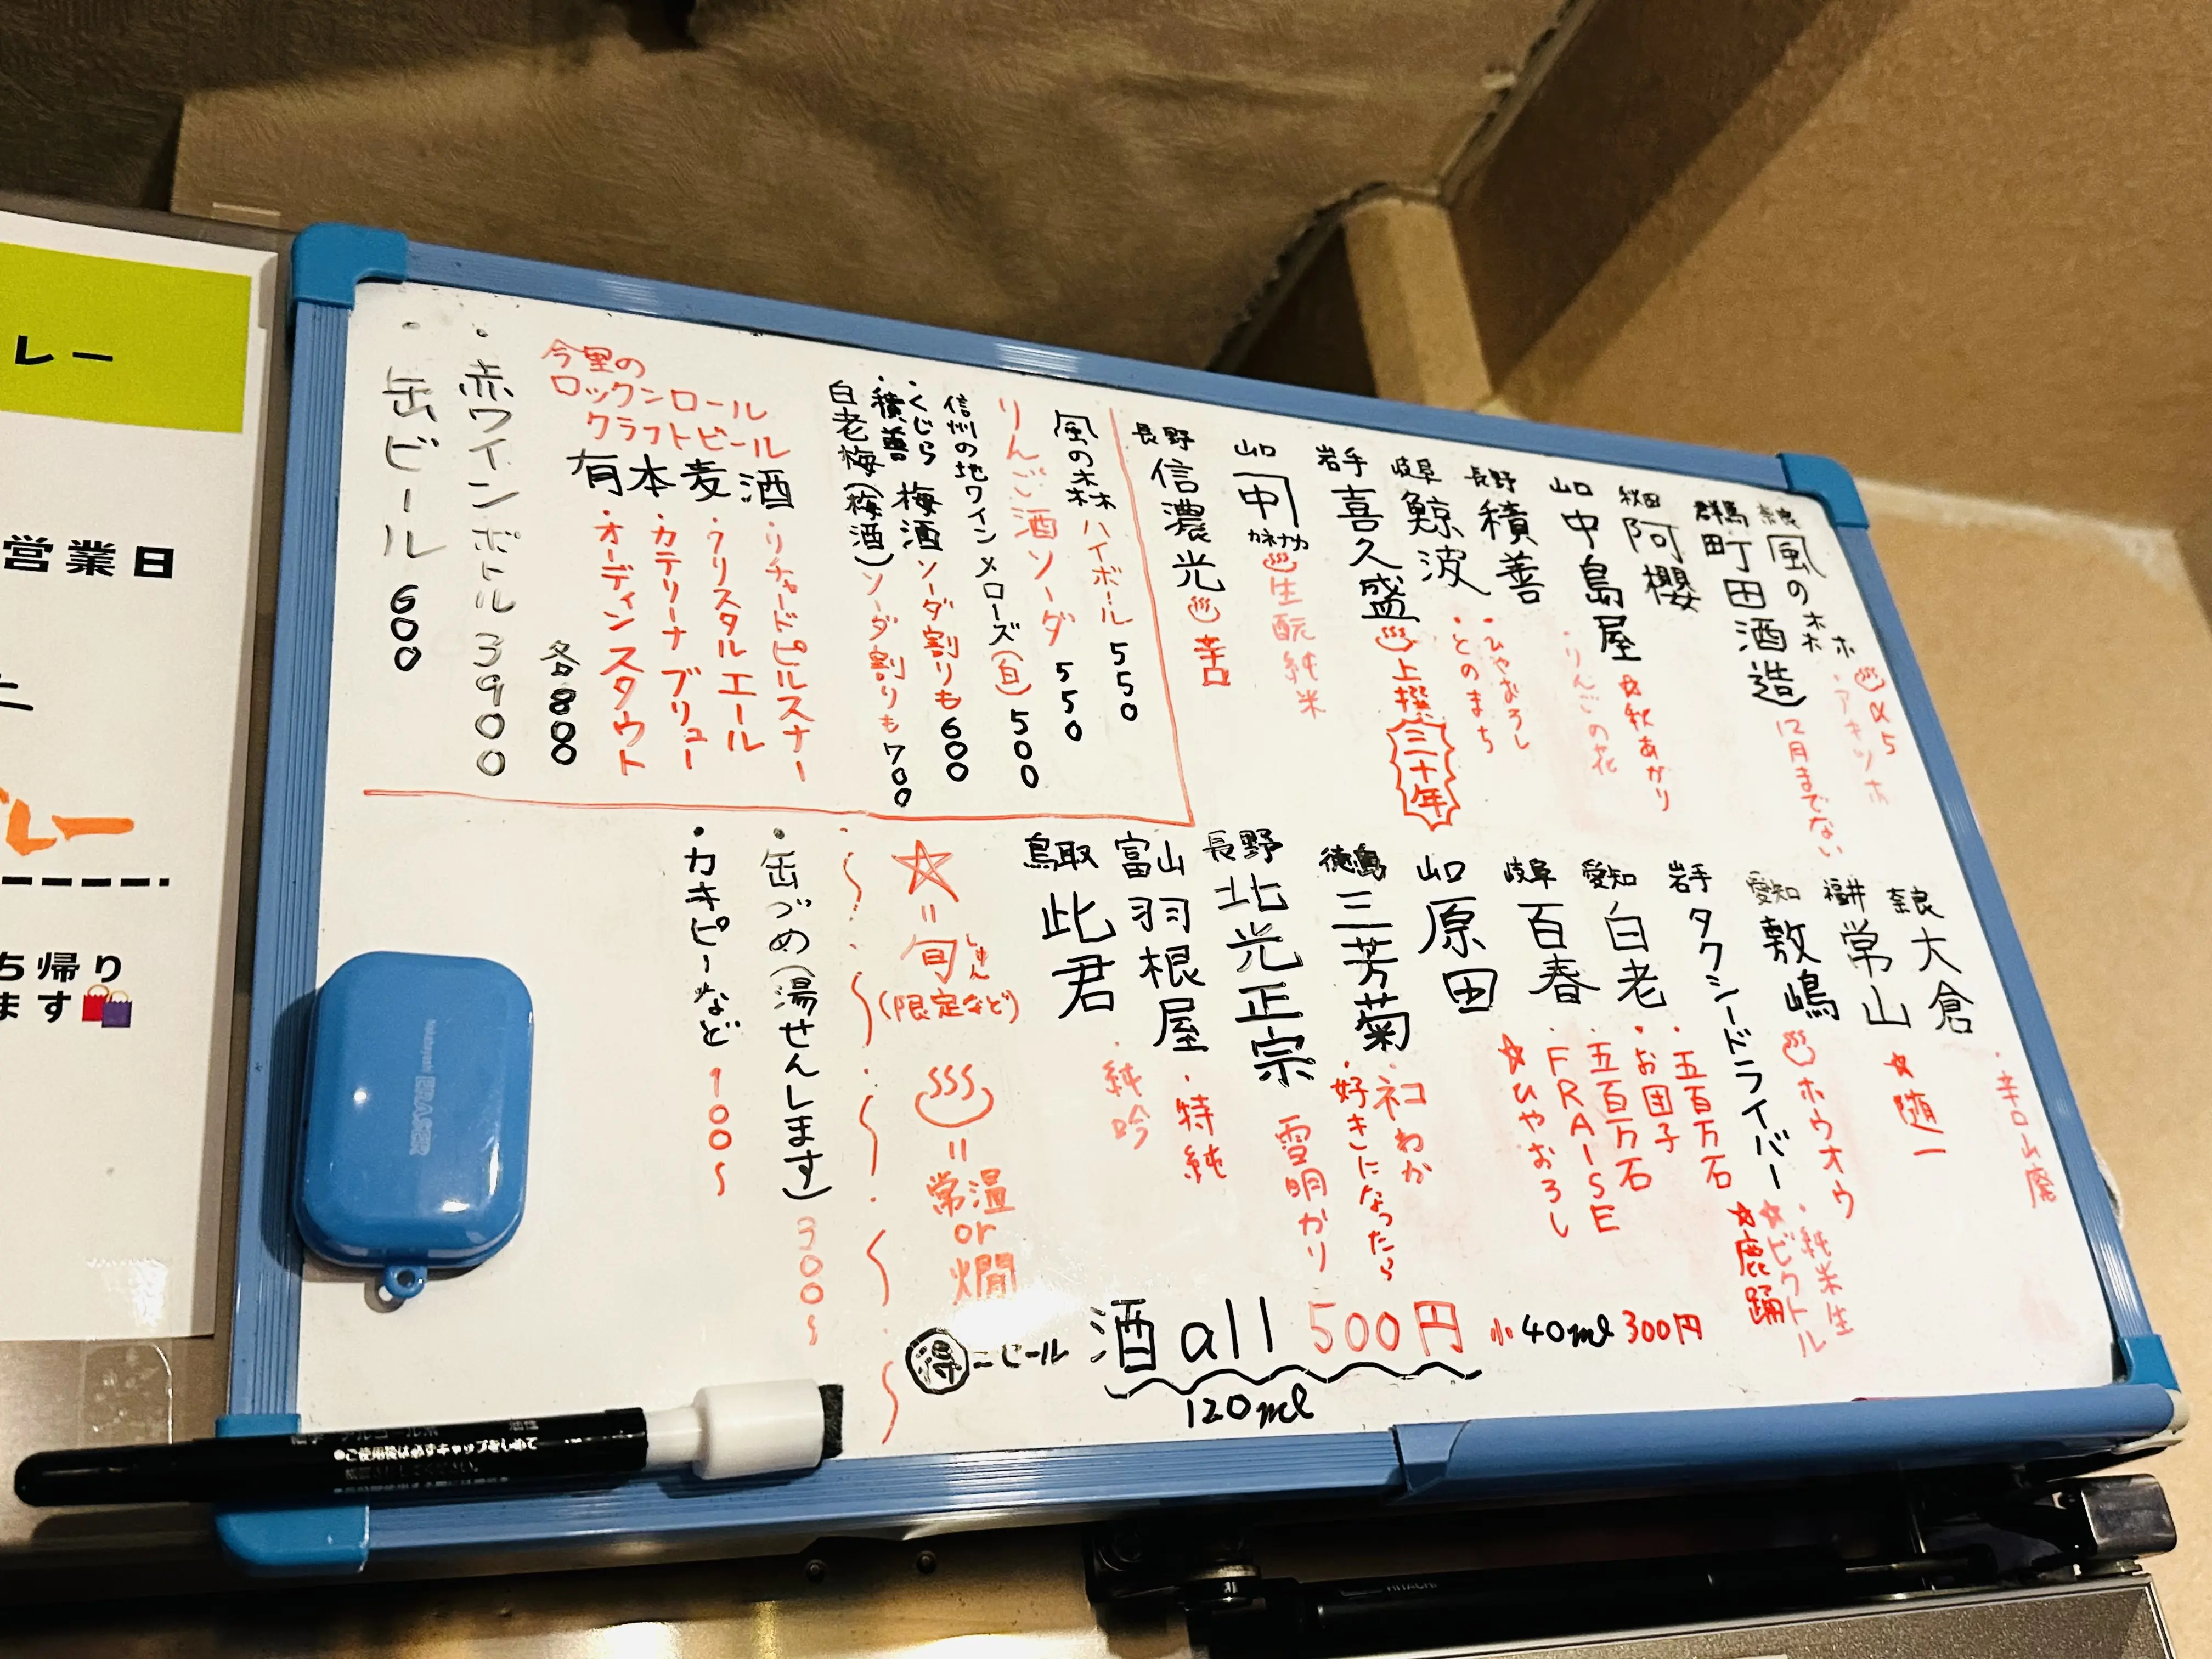 奈良 風の森 ♨α5
・アキツホ
群馬 町田酒造 12月までない
秋田 阿櫻 ☆秋あがり
山口 中島屋 ・りんごの花
長野 積善 ・ひやおろし
岐阜 鯨波 ・とのまち
岩手 喜久盛 ♨上撰 三十年
山口 中 カネナカ ♨生酛純米
長野 信濃光 ♨辛口
風の森 ハイボール 550
りんご酒ソーダ 550
信州の地ワイン メローズ(白) 500
・くじら 梅酒 ソーダ割りも 600
・積善
白老梅(梅酒) ソーダ割りも 700
今里の
ロックンロール
クラフトビール
有本麦酒
・リチャードピルスナー
・クリスタルエール
・カテリーナブリュー
・オーディンスタウト
各800
・赤ワインボトル 3900
・缶ビール 600
奈良 大倉 ・辛口山廃
福井 常山 ☆随一
愛知 敷嶋 ♨ホウオウ
・純米生
岩手 タクシードライバー ☆ビクトル
☆鹿踊
愛知 白老 ・五百万石
・お団子
岐阜 百春 ・五百万石
・FRAISE
☆ひやおろし
山口 原田
徳島 三芳菊 ・ネコわか
・好きになったら
長野 北光正宗 雪明かり
富山 羽根屋 ・特純
鳥取 此君 ・純吟
☆=旬(限定など)
しゅん
♨=常温or燗
・缶づめ(湯せんします) 300〜
・カキピーなど 100〜
得=ビール 酒all 500円 小40ml300円
120ml
レー
営業日
レー
ち帰り
ます
ERASER
●ご使用後は必ずキャップをしめて
HITACHI